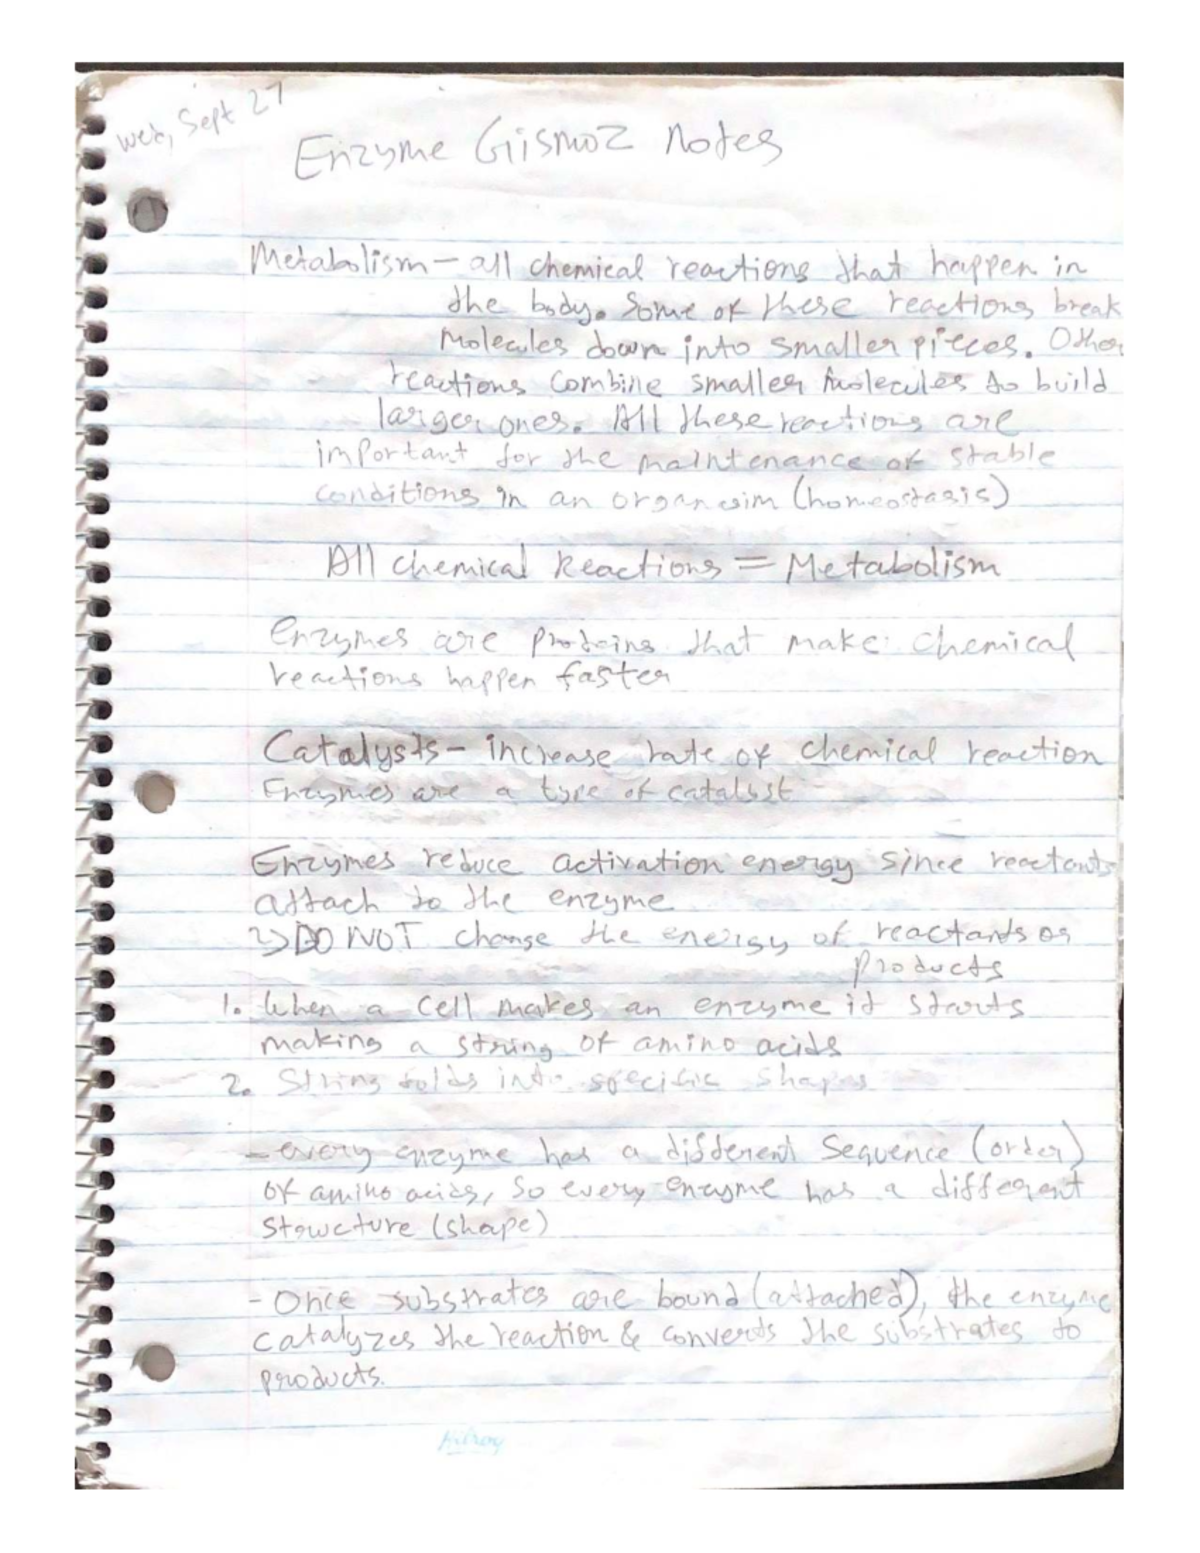 Wed, Sept 27
Enzyme Gismoz Notes
Metabolism - all chemical reactions that happen in
the body. Some of these reactions break
molecules down into smaller pieces. Other
reactions combine smaller molecules to build
larger ones. All these reactions are
important for the maintenance of stable
conditions in an organsim (homeostasis)
All chemical Reactions = Metabolism
Enzymes are proteins that make chemical
reactions happen faster
Catalysts - increase rate of chemical reaction
Enzymes are a type of catalyst
Enzymes reduce activation energy since reactants
attach to the enzyme
↳ DO NOT change the energy of reactants or
products
1. When a cell makes an enzyme it starts
making a string of amino acids
2. String folds into specific shapes
- every enzyme has a different Sequence (order)
of amino acids, so every enzyme has a different
structure (shape)
- Once substrates are bound (attached), the enzyme
catalyzes the reaction & converts the substrates to
products.
Hilroy